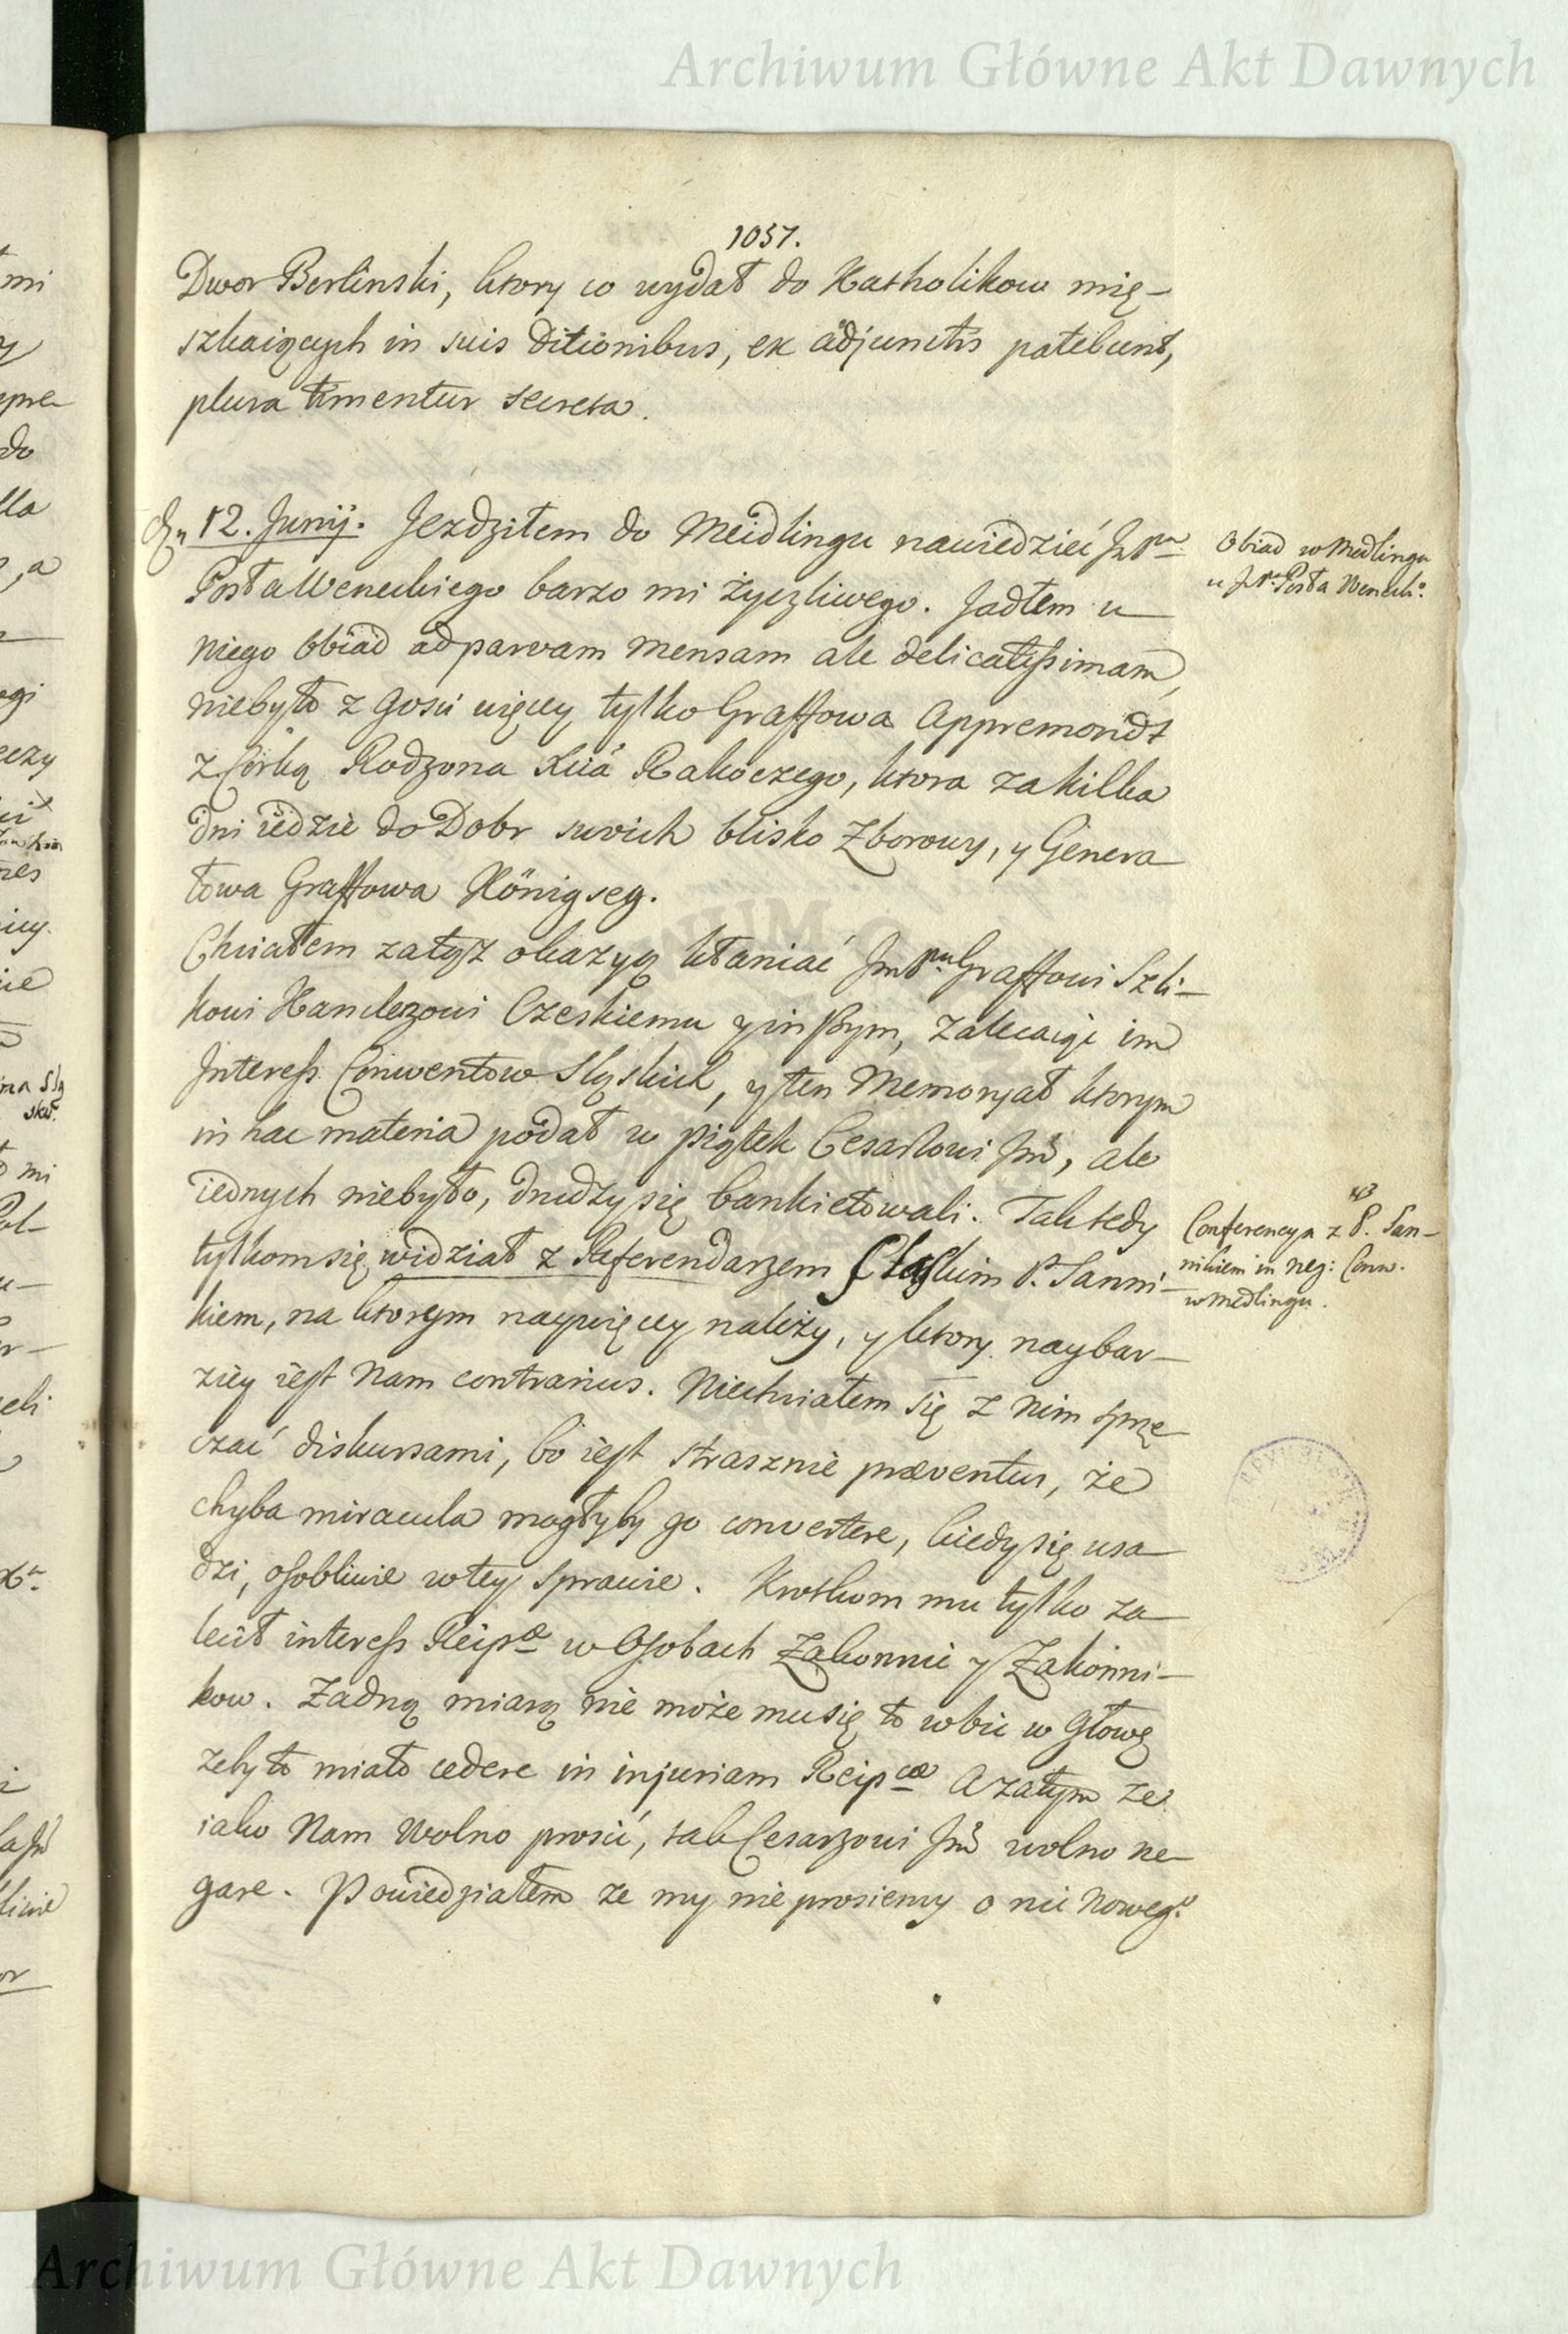 Archiwum Główne Akt Dawnych
1057.
Dwor Berlinski, ktory co wydał do Katholikow mię-
szkaiących in suis ditionibus, ex adjunctis patebunt,
plura timentur secreta.
12. Junij. Jezdziłem do Meidlingu nawiedzieć
Posła Weneckiego barzo mi życzliwego. Jadłem u
niego obiad ad parvam mensam ale delicatissimam,
niebyło z gosci więcy tylko Graffowa Appremondt
z Corką Rodzona Xcia Rakoczego, ktora za kilka
dni iedzie do Dobr swoich blisko Zborowy, y Genera
łowa Graffowa Königseg.
Chciałem za tąż okazyą kłaniać Jm Pnu Graffowi Szli-
kowi Kanclerzowi Czeskiemu y inszym, zalecaiąc im
Interess Conwentow Sląskich, y ten Memoryał ktorym
in hac materia podał w piątek Cesarzowi Jmć, ale
iednych niebyło, drudzy się bankietowali. Tak tedy
tylkom się widział z Referendarzem Sląskim P. Janni-
kiem, na ktorym naywięcy należy, y ktory naybar-
ziey iest Nam contrarius. Niechciałem się z nim sprze
czać diskursami, bo iest strasznie præventus, że
chyba miracula mogłyby go convertere, kiedy się usa
dzi, osobliwie w tey sprawie. Krotkom mu tylko za
lecił interess Reipcæ w Osobach Zakonnic y Zakonni-
kow. Zadną miarą nie może mu się to wbic w Głowę
zeby to miało cedere in injuriam Reipcæ A zatym ze
iako Nam wolno prosić, tak Cesarzowi Jmć wolno ne-
gare. Powiedziałem ze my nie prosiemy o nic nowego
Obiad w Medlingu
u Posła Wenecko.
Conferencya z P. Jan-
nikiem in neg: Conv.
w Medlingu.
Archiwum Główne Akt Dawnych